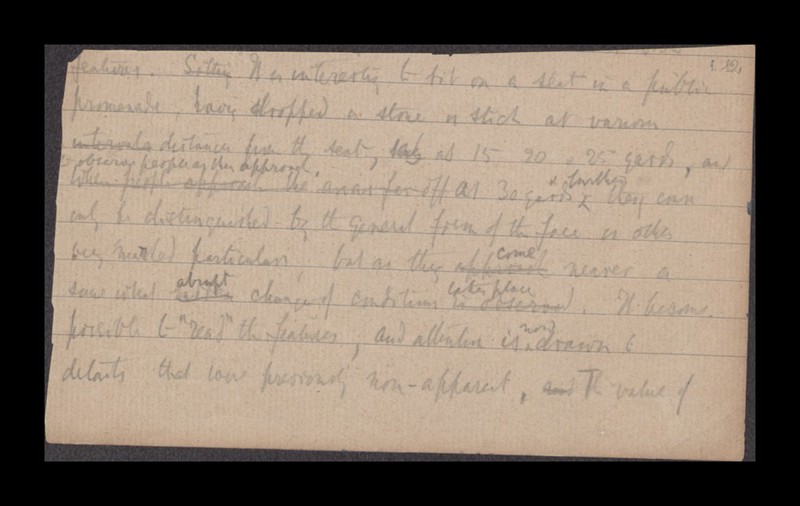 features. It is interesting to sit on a seat in a public
promenade, having dropped a stone or stick at various
intervals distances from the seat, say at 15 20 or 25 yards, and
observe people as they approach.
when people approach the far off At 30 yards & further they can
only be distinguished by the general form of the face or other
very marked particulars, but as they approach come nearer a
somewhat abrupt change of conditions is observed takes place. It becomes
possible to "read" the features, and attention is now drawn to
details that were previously non-apparent, and The value of